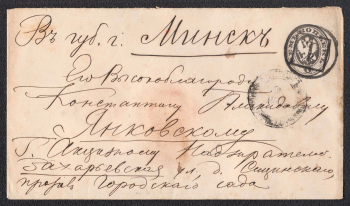 Въ губ. г. Минскъ
Его Высокоблагородію
Константину
Янковскому
Г. Акцизному Надзирателю
Захарьевская ул. д. Сущинскаго
противъ Городскаго сада